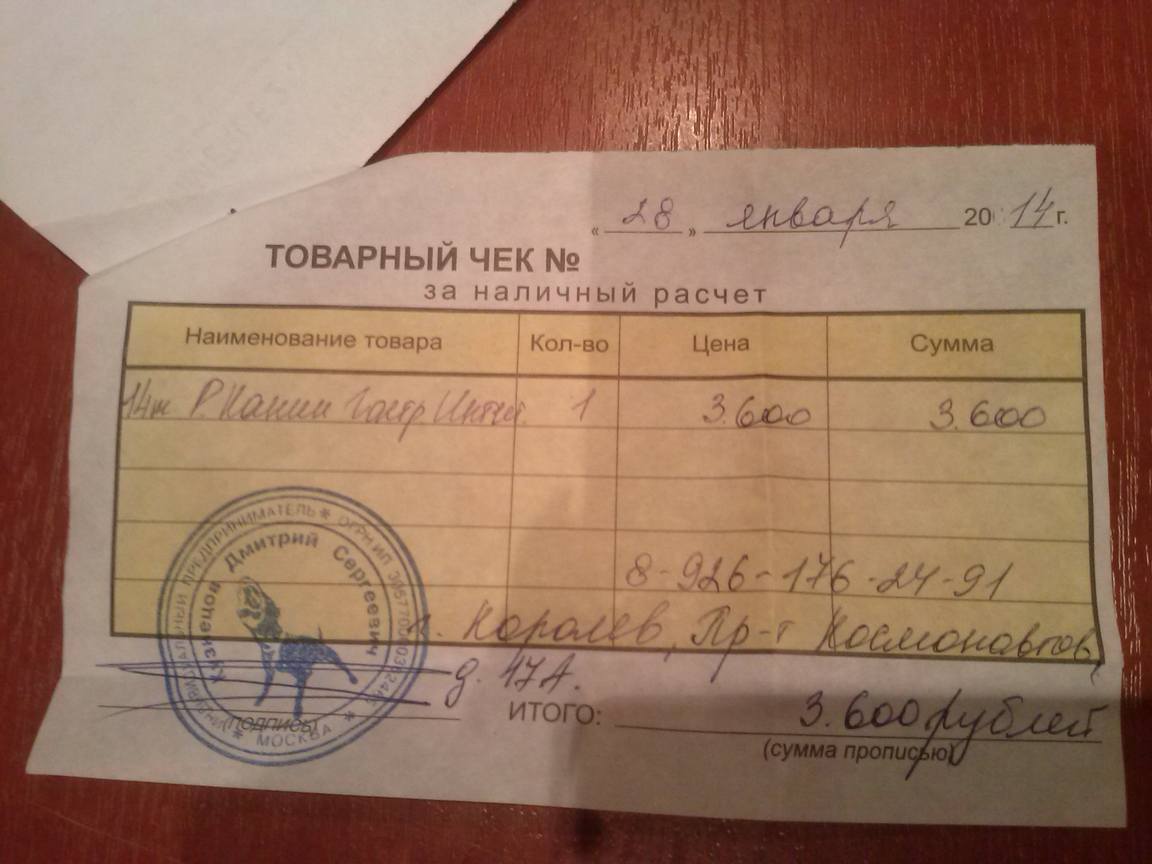 « 28 » января 2014 г.
ТОВАРНЫЙ ЧЕК №
за наличный расчет
Наименование товара Кол-во Цена Сумма
Р.Канин Гастр. 1 3.600 3.600
8-926-176-24-91
г. Королев, Пр-т Космонавтов,
д. 47А.
ИТОГО: 3.600 рублей
(подпись) (сумма прописью)
ИНДИВИДУАЛЬНЫЙ ПРЕДПРИНИМАТЕЛЬ * ОГРНИП
Кузнецов Дмитрий Сергеевич
* МОСКВА *